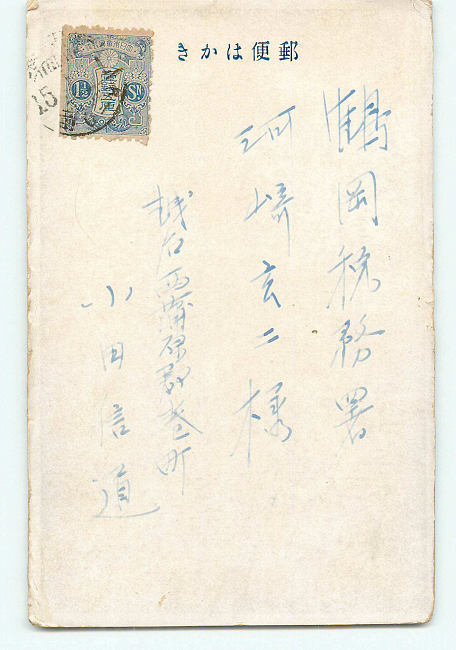 郵便はかき
鶴岡税務署
河崎玄二様
越后西蒲原郡巻町
小田信道
1½ Sn
15